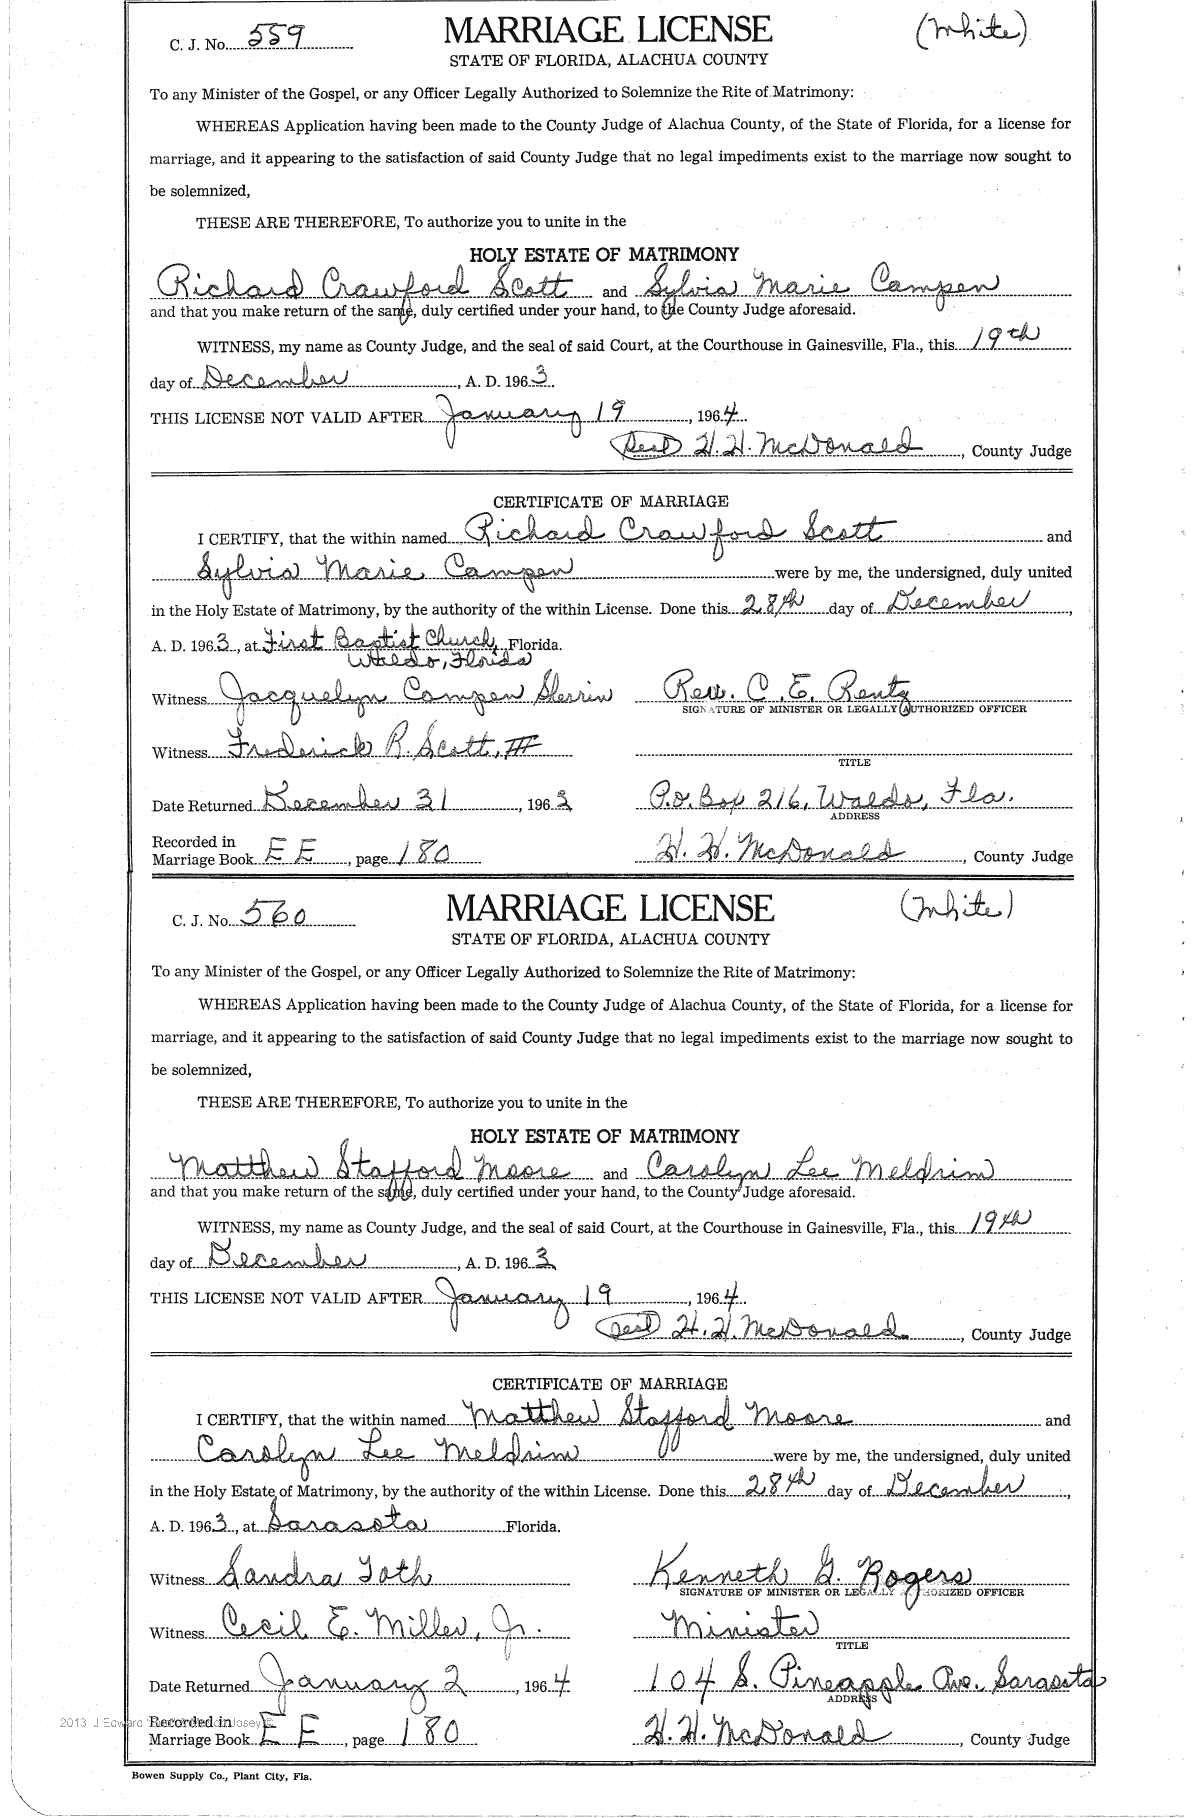 C. J. No. 559 MARRIAGE LICENSE (White)
STATE OF FLORIDA, ALACHUA COUNTY
To any Minister of the Gospel, or any Officer Legally Authorized to Solemnize the Rite of Matrimony:
WHEREAS Application having been made to the County Judge of Alachua County, of the State of Florida, for a license for
marriage, and it appearing to the satisfaction of said County Judge that no legal impediments exist to the marriage now sought to
be solemnized,
THESE ARE THEREFORE, To authorize you to unite in the
HOLY ESTATE OF MATRIMONY
Richard Crawford Scott and Sylvia Marie Campen
and that you make return of the same, duly certified under your hand, to the County Judge aforesaid.
WITNESS, my name as County Judge, and the seal of said Court, at the Courthouse in Gainesville, Fla., this 19th
day of December, A. D. 1963.
THIS LICENSE NOT VALID AFTER January 19, 1964
(Seal) H. H. McDonald, County Judge
CERTIFICATE OF MARRIAGE
I CERTIFY, that the within named Richard Crawford Scott and
Sylvia Marie Campen were by me, the undersigned, duly united
in the Holy Estate of Matrimony, by the authority of the within License. Done this 28th day of December,
A. D. 1963, at First Baptist Church, Florida.
Waldo, Florida
Witness Jacquelyn Campen Sherrin Rev. C. E. Rentz
SIGNATURE OF MINISTER OR LEGALLY AUTHORIZED OFFICER
Witness Frederick R. Scott, III
TITLE
Date Returned December 31, 1963 P.O. Box 216, Waldo, Fla.
ADDRESS
Recorded in
Marriage Book E E, page 180 H. H. McDonald, County Judge
C. J. No. 560 MARRIAGE LICENSE (White)
STATE OF FLORIDA, ALACHUA COUNTY
To any Minister of the Gospel, or any Officer Legally Authorized to Solemnize the Rite of Matrimony:
WHEREAS Application having been made to the County Judge of Alachua County, of the State of Florida, for a license for
marriage, and it appearing to the satisfaction of said County Judge that no legal impediments exist to the marriage now sought to
be solemnized,
THESE ARE THEREFORE, To authorize you to unite in the
HOLY ESTATE OF MATRIMONY
Matthew Stafford Moore and Carolyn Lee Meldrim
and that you make return of the same, duly certified under your hand, to the County Judge aforesaid.
WITNESS, my name as County Judge, and the seal of said Court, at the Courthouse in Gainesville, Fla., this 19th
day of December, A. D. 1963
THIS LICENSE NOT VALID AFTER January 19, 1964
(Seal) H. H. McDonald, County Judge
CERTIFICATE OF MARRIAGE
I CERTIFY, that the within named Matthew Stafford Moore and
Carolyn Lee Meldrim were by me, the undersigned, duly united
in the Holy Estate of Matrimony, by the authority of the within License. Done this 28th day of December,
A. D. 1963, at Sarasota Florida.
Witness Sandra Toth Kenneth G. Rogers
SIGNATURE OF MINISTER OR LEGALLY AUTHORIZED OFFICER
Witness Cecil E. Miller, Jr. Minister
TITLE
Date Returned January 2, 1964 104 S. Pineapple Ave. Sarasota
ADDRESS
2013 J Edward Josey ©
Recorded in
Marriage Book E E, page 180 H. H. McDonald, County Judge
Bowen Supply Co., Plant City, Fla.